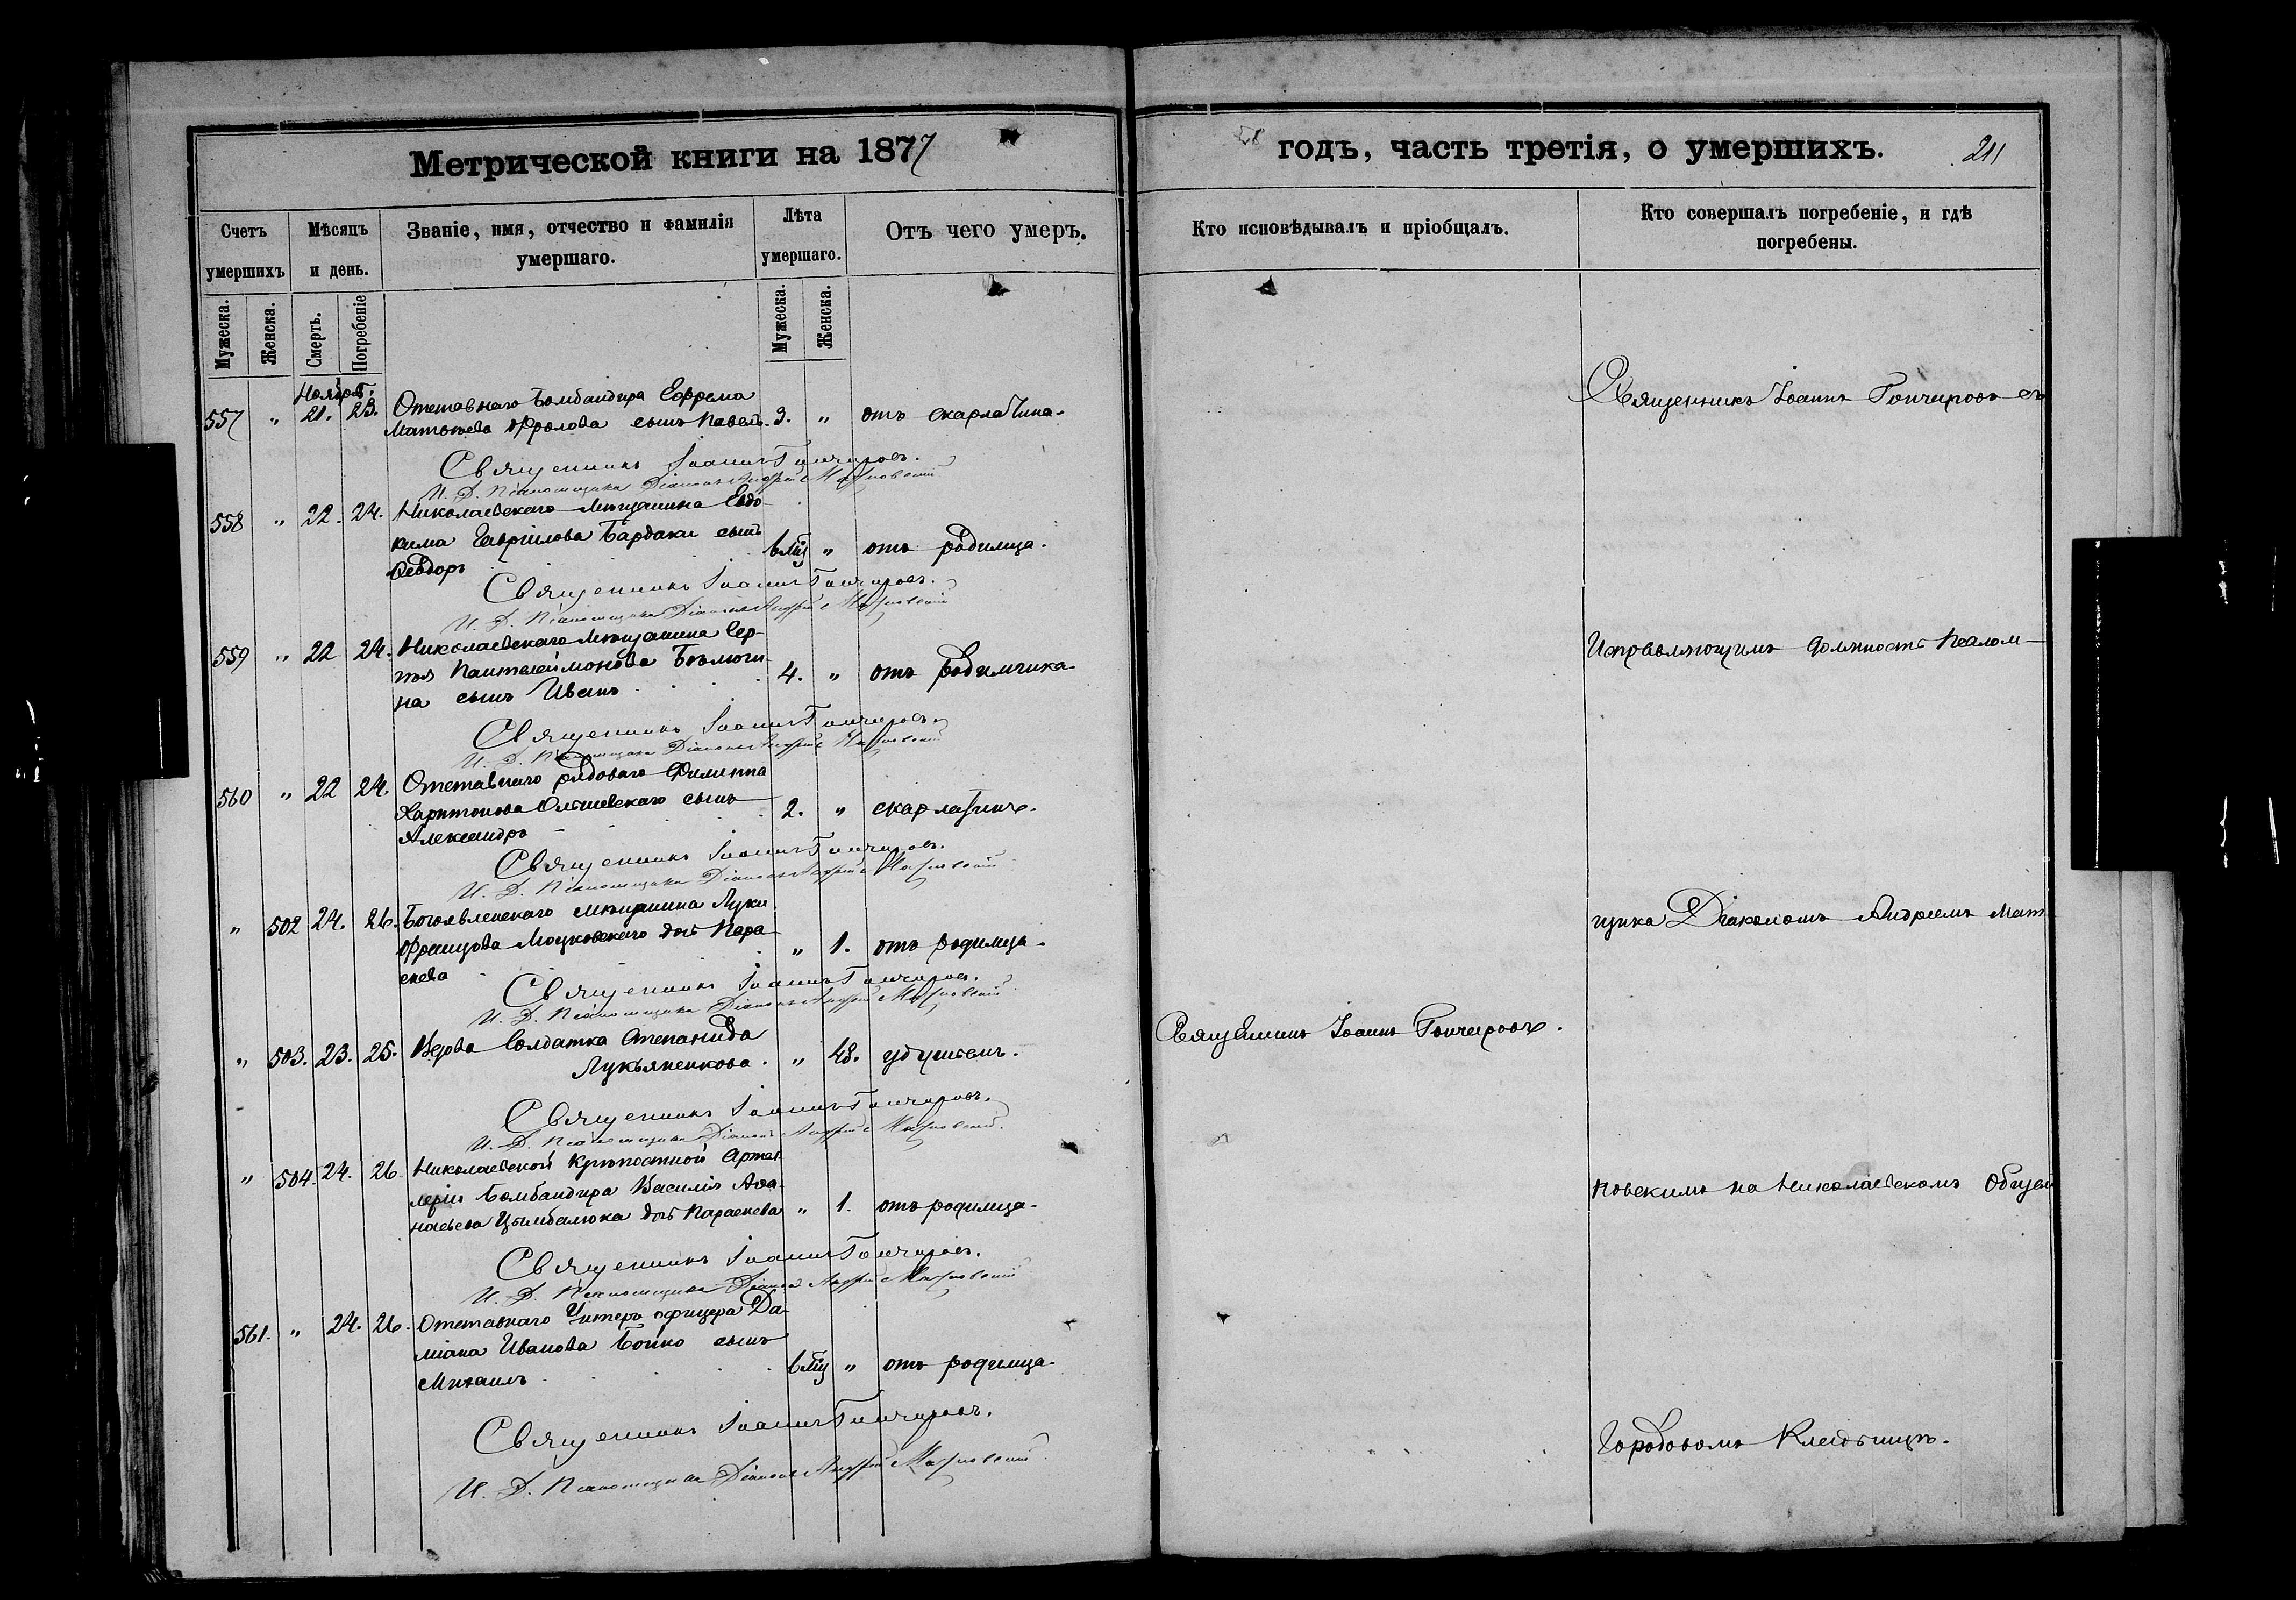 Метрической книги на 1877
годъ, часть третія, о умершихъ.
211
Счетъ умершихъ
Мѣсяцъ и день.
Званіе, имя, отчество и фамилія умершаго.
Лѣта умершаго.
Отъ чего умеръ.
Кто исповѣдывалъ и пріобщалъ.
Кто совершалъ погребеніе, и гдѣ погребены.
Мужеска.
Женска.
Смерть.
Погребеніе
Мужеска.
Женска.
Ноябрь.
557 " 21. 23. Отставнаго Бомбандира Ефрема
Матвѣева Фролова сынъ Павелъ. 3. " отъ скарлатина.
Священникъ Іоаннъ Гончаровъ.
И. Д. Псаломщика Діаконъ Андрей
558 " 22. 24. Николаевскаго мѣщанина Евдо-
кима Гаврiилова Бардаки сынъ
Ѳеодоръ " отъ родимца.
Священникъ Іоаннъ Гончаровъ.
И. Д. Псаломщика Діаконъ Андрей
559 " 22 24. Николаевскаго мѣщанина Сер-
гѣя Пантелеймонова Бѣлюги-
на сынъ Иванъ 4. " отъ родимчика.
Священникъ Іоаннъ Гончаровъ.
И. Д. Псаломщика Діаконъ Андрей
560 " 22 24. Отставнаго рядоваго Филиппа
Харитонова Ольшевскаго сынъ
Александръ 2. " скарлатинѣ.
Священникъ Іоаннъ Гончаровъ.
И. Д. Псаломщика Діаконъ Андрей
" 502 24. 26. Богоявленскаго мѣщанина Луки
Францова Моцковскаго дочь Пара-
скева " 1. отъ родимца.
Священникъ Іоаннъ Гончаровъ.
И. Д. Псаломщика Діаконъ Андрей
" 503. 23. 25. Вдова Солдатка Степанида
Лукьяненкова. " 48. удушьемъ.
Священникъ Іоаннъ Гончаровъ.
И. Д. Псаломщика Діаконъ Андрей
" 504. 24. 26 Николаевской крѣпостной Артил-
леріи Бомбандира Василія Аѳа-
насьева Цымбалюка дочь Параскева " 1. отъ родимца.
Священникъ Іоаннъ Гончаровъ.
И. Д. Псаломщика Діаконъ Андрей
561. " 24. 26. Отставнаго Унтеръ офицера Да-
міана Иванова Бойко сынъ
Михаилъ " отъ родимца.
Священникъ Іоаннъ Гончаровъ.
И. Д. Псаломщика Діаконъ Андрей
Священникъ Іоаннъ Гончаровъ.
Священникъ Іоаннъ Гончаровъ съ
Исправляющимъ должность Псалом-
щика Діакономъ Андреемъ Мат
новскимъ на Николаевскомъ Общем
Городовомъ Кладбищѣ.